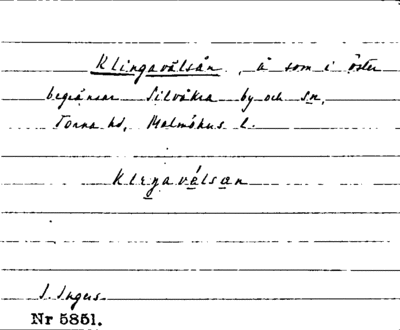 Klingavälsån, å som i öster
begränsar Silvåkra by och sn,
Torna hd, Malmöhus l.
Klɩŋavélsan
J. Ingers
Nr 5851.